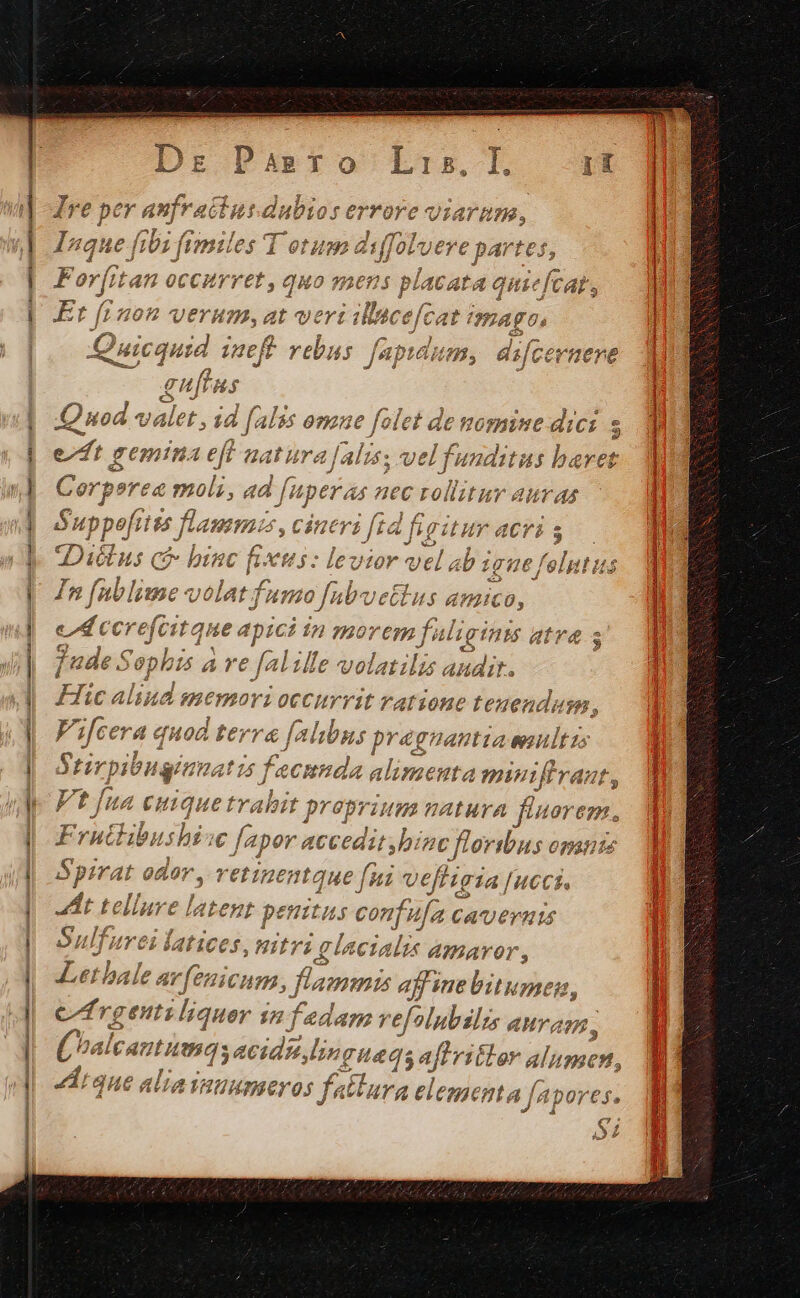 De Paeto Lib. I. 11
Ire per anfractus dubios errore viarum,
Inque ſibi ſimiles Totum diſſolvere partes,
Forſitan occurret, quo mens placata quieſcat,
Et ſi non verum, at veri illuceſcat imago.
Quicquid ineſt rebus ſapidum, diſcernere
guſtus
Quod valet, id ſalis omne ſolet de nomine dici;
At gemina eſt natura ſalis; vel funditus hæret
Corporeæ moli, ad ſuperas nec tollitur auras
Suppoſitis flammis, cineri ſed figitur acri;
Dictus & hinc fixus: levior vel ab igne ſolutus
In ſublime volat fumo ſubvectus amico,
Accreſcitque apici in morem fuliginis atræ;
Inde Sophis a re ſal ille volatilis audit.
Hic aliud memori occurrit ratione tenendum,
Viſcera quod terræ ſalibus prægnantia multis
Stirpibus innatis fœcunda alimenta miniſtrant,
Vt ſua cuique trahit proprium natura fluorem.
Fructibus hinc ſapor accedit, hinc floribus omnis
Spirat odor, retinentque ſui veſtigia ſucci.
At tellure latent penitus confuſa cavernis
Sulfurei latices, nitri glacialis amaror,
Lethale arſenicum, flammis affine bitumen,
Argenti liquor in fœdam reſolubilis auram,
Chalcantumq; acidũ, linguaeq; aſtrictor alumen,
Atque alia innumeros factura elementa ſapores.
Si